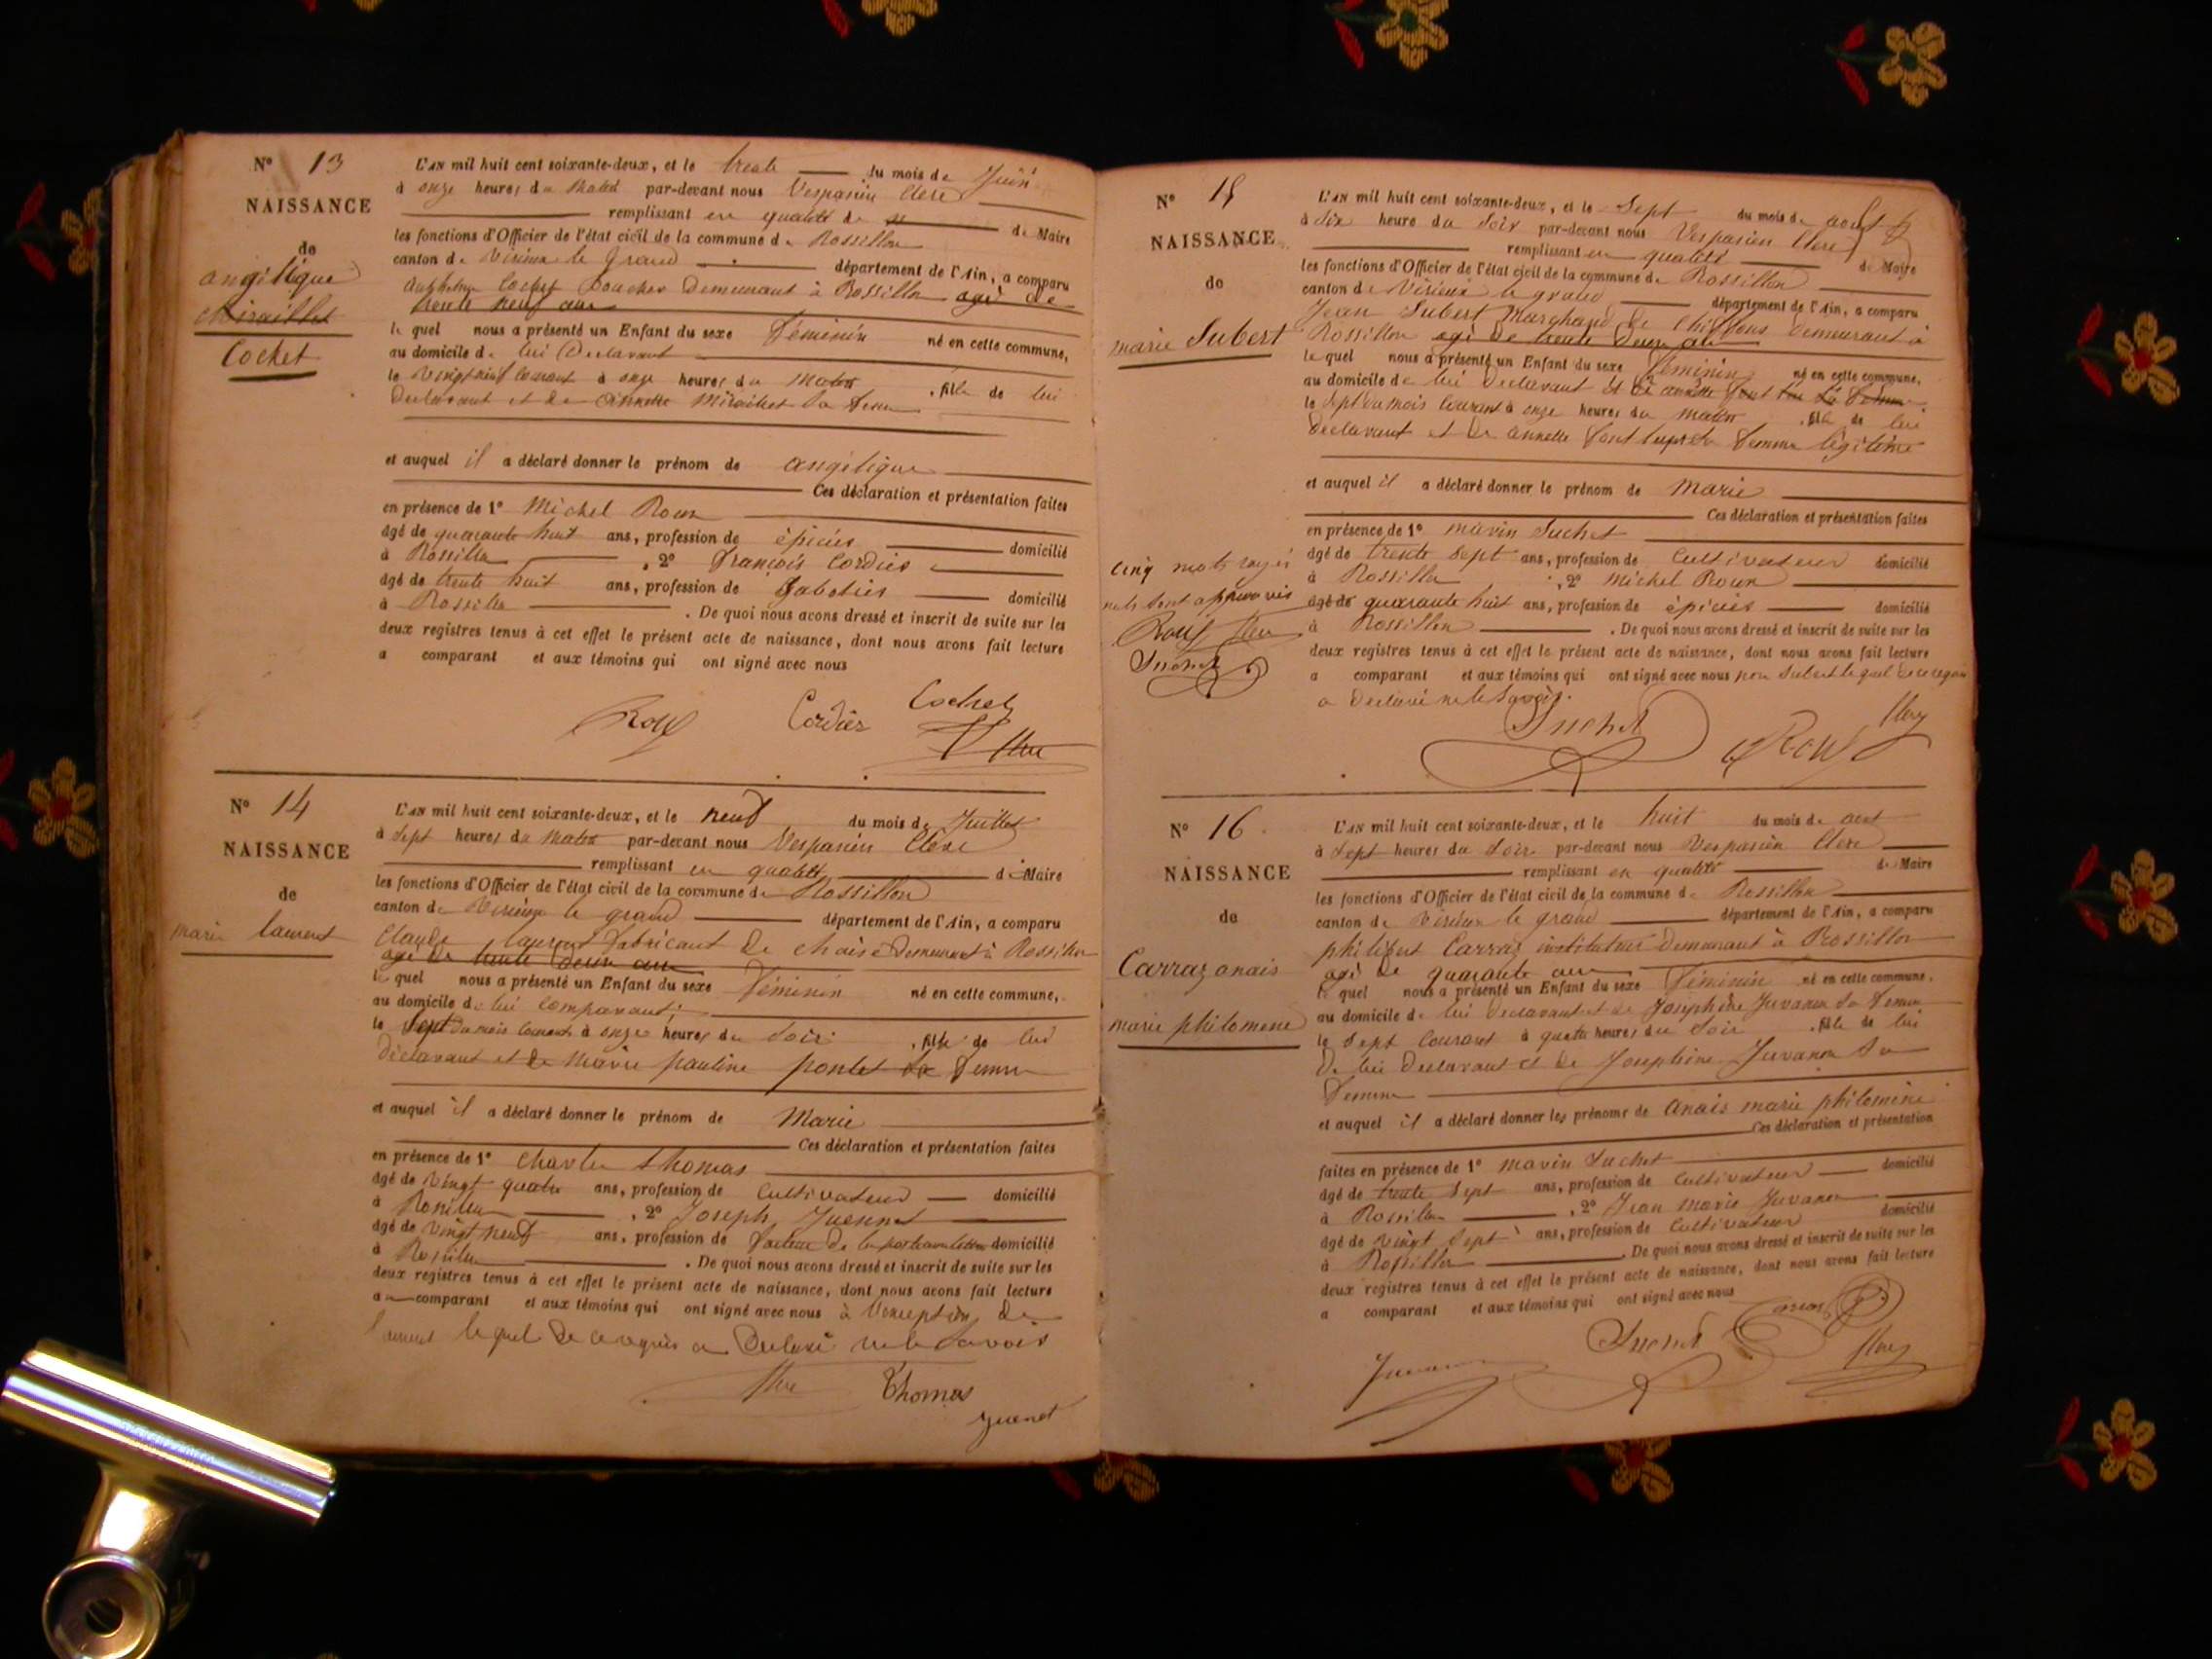 N° 13
NAISSANCE
de
angélique
Cochet
L'AN mil huit cent soixante-deux, et le trente du mois de Juin
à onze heures du matin par-devant nous Vespasien Clerc
remplissant en qualité de
de Maire
les fonctions d'Officier de l'état civil de la commune de Rossillon
canton de Virieu le grand département de l'Ain, a comparu
Cochet Boucher Demeurant à Rossillon agé de
trente neuf ans
le quel nous a présenté un Enfant du sexe féminin né en cette commune,
au domicile de lui Déclarant
le vingt neuf courant à onze heures du matin, fille de lui
Déclarant et de annette Miraillet sa femme
et auquel il a déclaré donner le prénom de angélique
Ces déclaration et présentation faites
en présence de 1° Michel Roux
âgé de quarante huit ans, profession de épicier domicilié
à Rossillon, 2° françois Cordier
âgé de trente huit ans, profession de Sabotier domicilié
à Rossillon. De quoi nous avons dressé et inscrit de suite sur les
deux registres tenus à cet effet le présent acte de naissance, dont nous avons fait lecture
a comparant et aux témoins qui ont signé avec nous
Roux Cordier Cochet
Clerc
N° 14
NAISSANCE
de
marie laurent
L'AN mil huit cent soixante-deux, et le neuf du mois de Juillet
à Sept heures du matin par-devant nous Vespasien Clerc
remplissant en qualité de Maire
les fonctions d'Officier de l'état civil de la commune de Rossillon
canton de Virieu le grand département de l'Ain, a comparu
Claude laurent fabricant de chaise Demeurant à Rossillon
agé de trente deux ans
le quel nous a présenté un Enfant du sexe féminin né en cette commune,
au domicile de lui comparant
le Sept du mois courant à onze heures du Soir, fille de lui
Déclarant et de marie pauline ponlet sa femme
et auquel il a déclaré donner le prénom de Marie
Ces déclaration et présentation faites
en présence de 1° Charles thomas
âgé de vingt quatre ans, profession de Cultivateur domicilié
à Rossillon, 2° Joseph Juennet
âgé de vingt neuf ans, profession de facteur de la poste aux lettres domicilié
à Rossillon. De quoi nous avons dressé et inscrit de suite sur les
deux registres tenus à cet effet le présent acte de naissance, dont nous avons fait lecture
a comparant et aux témoins qui ont signé avec nous à l'exception de
laurent lequel de ce requis a Déclaré ne le Savoir
Clerc Thomas
Juenet
N° 15
NAISSANCE
de
marie Subert
cinq mots rayés
nuls sont approuvés
Roux Clerc
Suchet
L'AN mil huit cent soixante-deux, et le Sept du mois de août
à Six heure du Soir par-devant nous Vespasien Clerc
remplissant en qualité de Maire
les fonctions d'Officier de l'état civil de la commune de Rossillon
canton de Virieu le grand département de l'Ain, a comparu
Jean Subert Marchand de Chiffons demeurant à
Rossillon agé de trente Deux ans
le quel nous a présenté un Enfant du sexe féminin né en cette commune,
au domicile de lui Déclarant et de annette
le Sept du mois Courant à onze heures du matin, fille de lui
Déclarant et de annette sa femme légitime
et auquel il a déclaré donner le prénom de Marie
Ces déclaration et présentation faites
en présence de 1° marin Suchet
âgé de trente Sept ans, profession de Cultivateur domicilié
à Rossillon, 2° Michel Roux
âgé de quarante huit ans, profession de épicier domicilié
à Rossillon. De quoi nous avons dressé et inscrit de suite sur les
deux registres tenus à cet effet le présent acte de naissance, dont nous avons fait lecture
a comparant et aux témoins qui ont signé avec nous non Subert lequel de ce requis
a Déclaré ne le Savoir.
Suchet Roux Clerc
N° 16
NAISSANCE
de
Carraz anais
marie philomene
L'AN mil huit cent soixante-deux, et le huit du mois de aout
à Sept heures du Soir par-devant nous Vespasien Clerc
remplissant en qualité de Maire
les fonctions d'Officier de l'état civil de la commune de Rossillon
canton de Virieu le grand département de l'Ain, a comparu
philibert Carraz instituteur Demeurant à Rossillon
agé de quarante ans
le quel nous a présenté un Enfant du sexe féminin né en cette commune.
au domicile de lui Déclarant et de Josephine Juvanon sa femme
le Sept Courant à quatre heures du Soir, fille de lui
De lui Déclarant et de Josephine Juvanon Sa
femme
et auquel il a déclaré donner les prénoms de Anais marie philomène
Ces déclaration et présentation
faites en présence de 1° marin Suchet
âgé de trente Sept ans, profession de Cultivateur domicilié
à Rossillon, 2° Jean Marie Juvanon
âgé de vingt Sept ans, profession de Cultivateur domicilié
à Rossillon. De quoi nous avons dressé et inscrit de suite sur les
deux registres tenus à cet effet le présent acte de naissance, dont nous avons fait lecture
a comparant et aux témoins qui ont signé avec nous
Carraz
Suchet
Juvanon Clerc